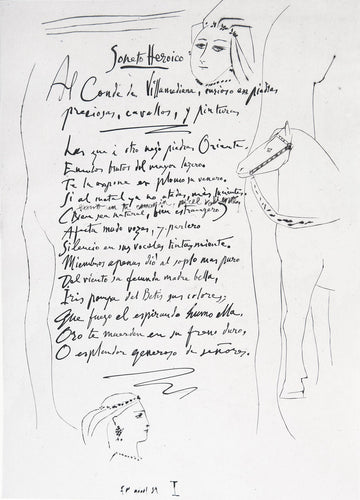 Soneto Heroico
Al Conde de Villamediana, curioso en piedras
preciosas, cavallos, y pinturas
Las que a otro negó piedras Oriente.
Emulos brutos del mayor luzero.
Te la expone en plomo su venero.
Si al metal ya no atadas, mas
en tu pincel
(Bien sea natural, bien estrangero)
Afecta mudo vozes, y parlero
Silencio en sus vocales tintas miente.
Miembros apenas dió al soplo mas puro
Del viento su fecunda madre bella,
Iris pompa del Betis sus colores;
Que fuego el espirando humo ella.
Oro te muerden en su freno duro,
O esplendor generoso de señores.
I